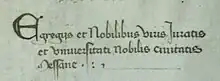 Egregijs et Nobilibus viris Juratis
et vniuersitati nobilis ciuitatis
Messane . : ,